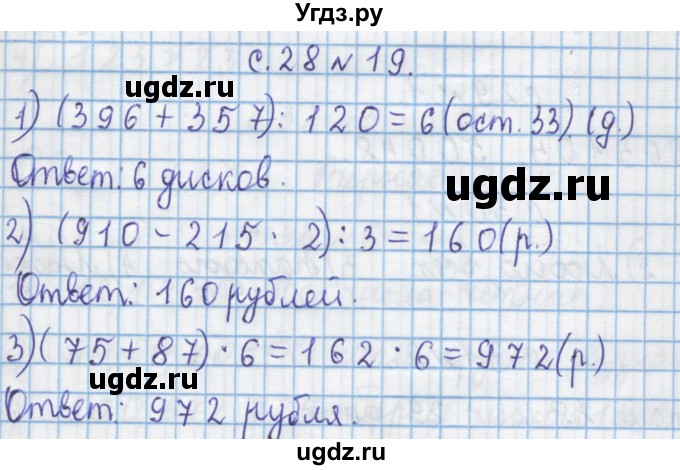 Угдз.ру
с. 28 № 19.
ugdz.ru
1) (396 + 357) : 120 = 6 (ост. 33) (д.)
Ответ: 6 дисков.
ugdz.ru
2) (910 - 215 · 2) : 3 = 160 (р.)
Ответ: 160 рублей.
3) (75 + 87) · 6 = 162 · 6 = 972 (р.)
ugdz.ru
ugdz.ru
Ответ: 972 рубля.
ugdz.ru
Угдз.ру